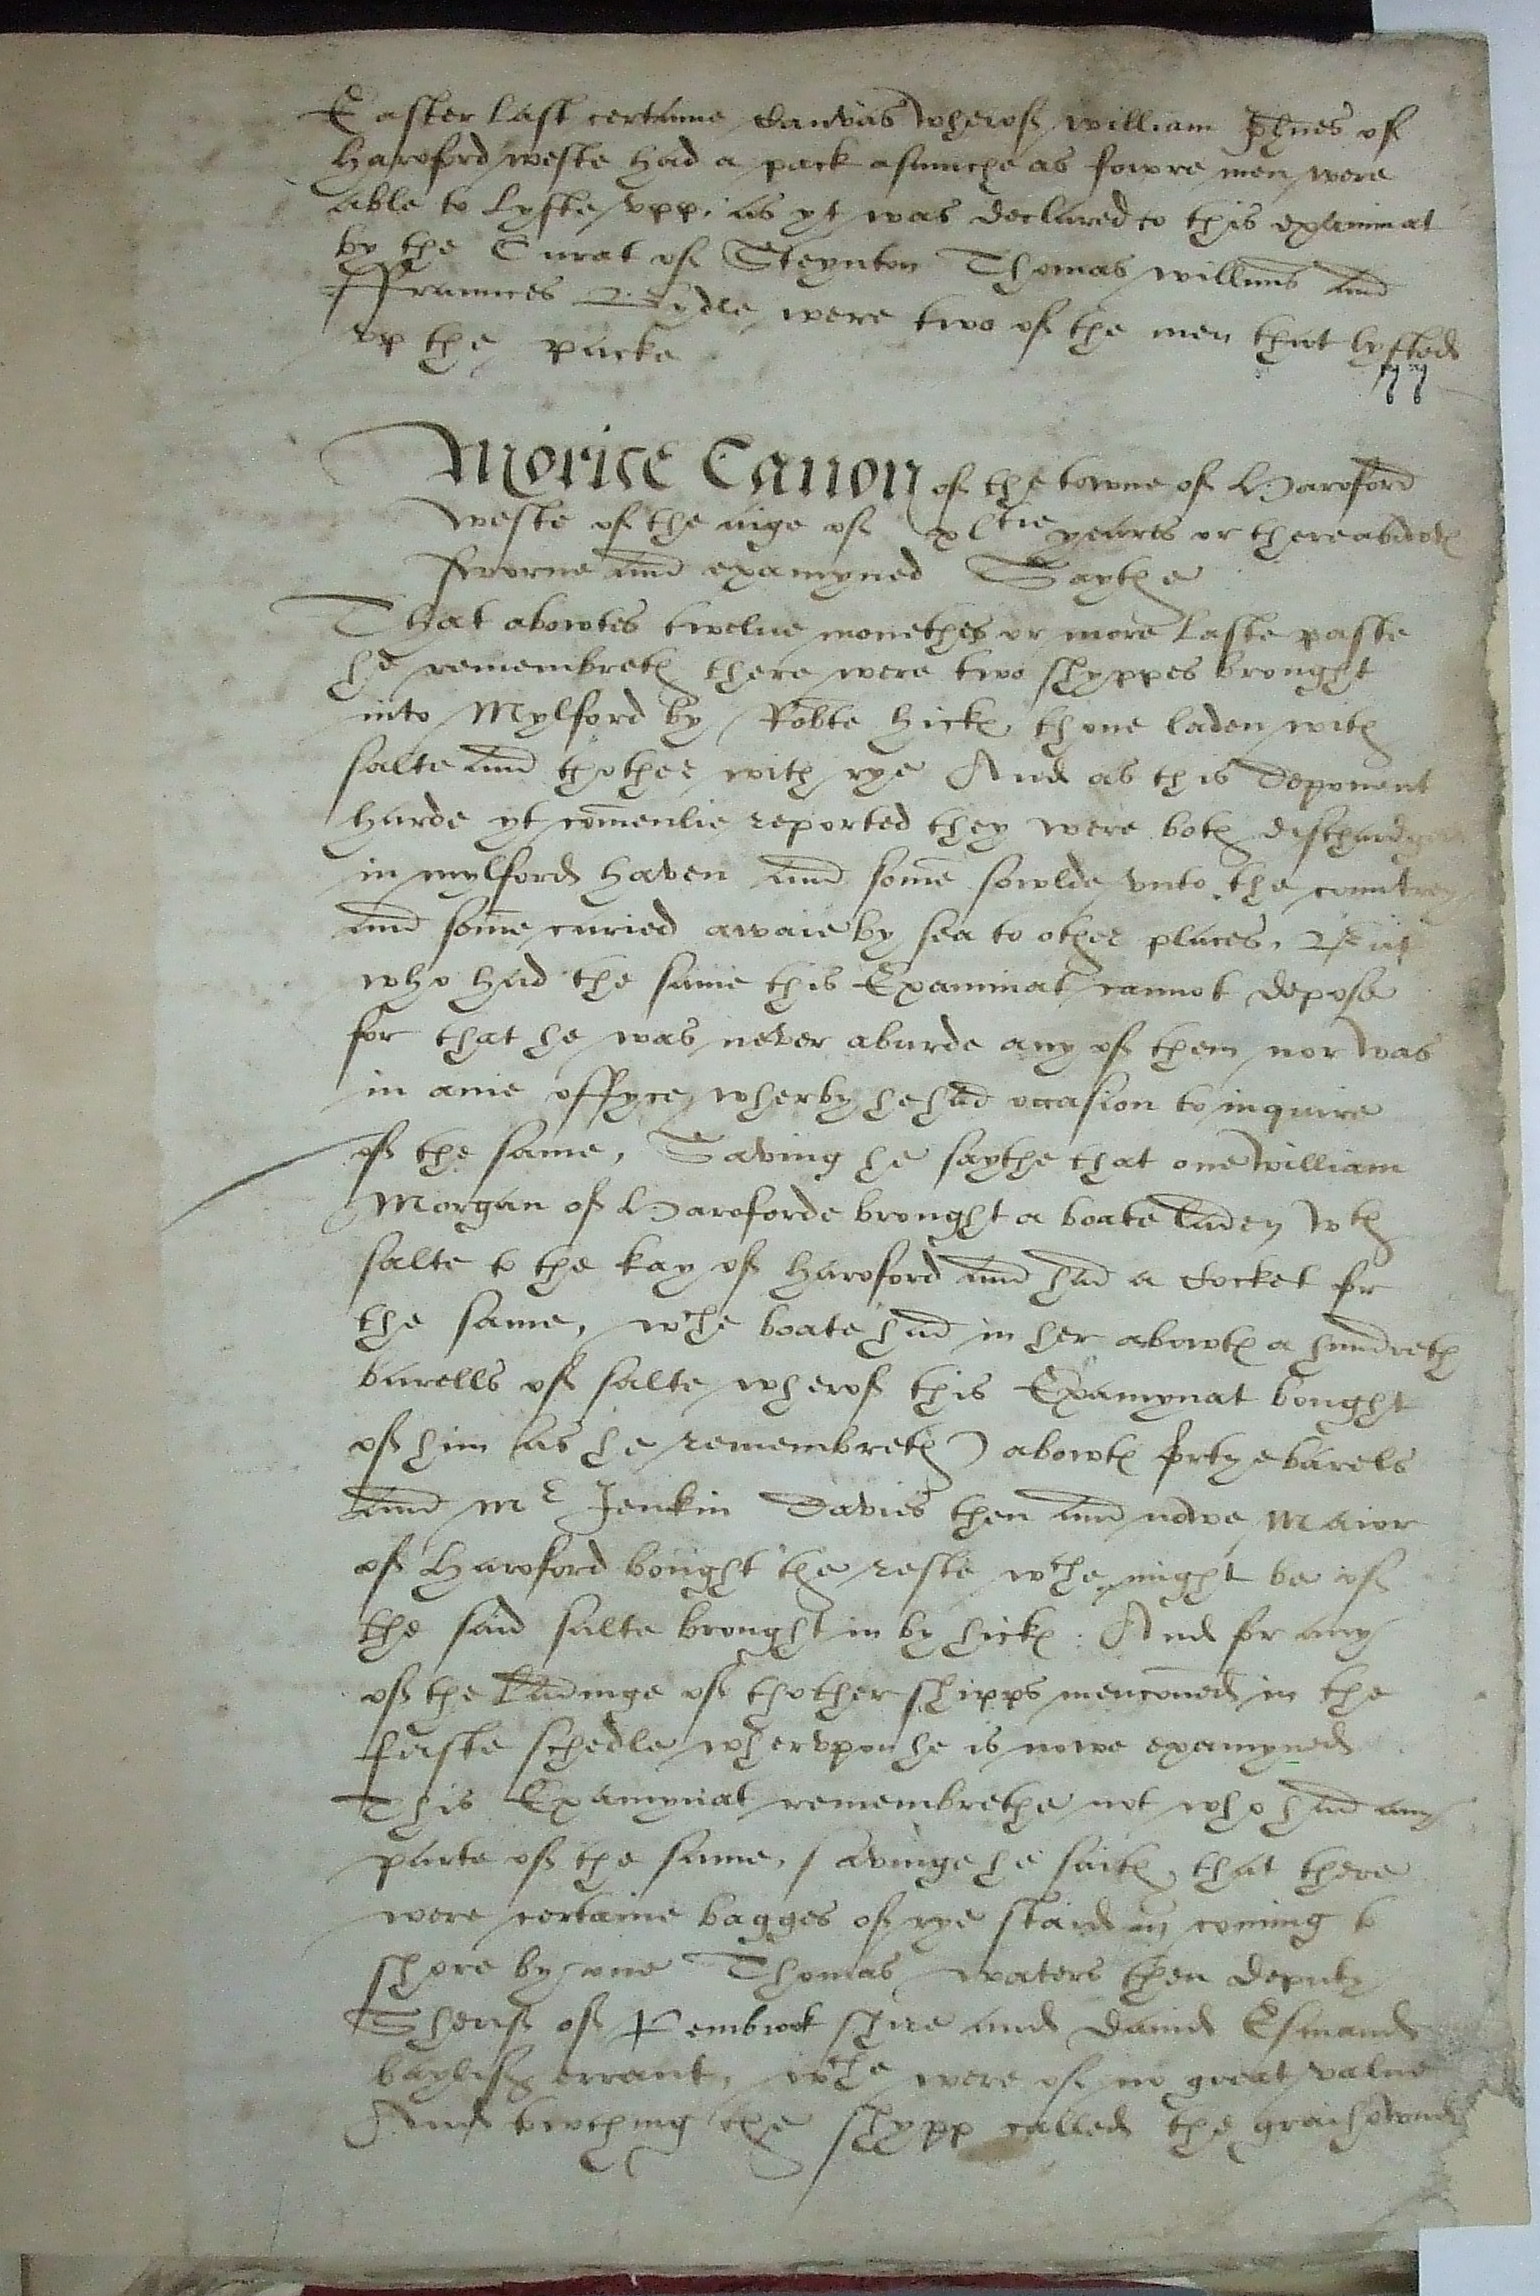 Easter last certaine canvas wherof william Jhnes of
Haroford weste had a pack asmuche as fowre men were
able to lyfte vpp, as yt was declared to this examinat
by the Curat of Steynton Thomas willms and
ffraunces were two of the men that lyfted
vp the packe
77
Morice Canon of the towne of Haroford
weste of the aige of xl tie yeares or thereabowtes
sworne and examyned Saythe
That abowtes twelue monethes or more laste paste
he remembreth there were two shyppes brought
into Mylford by Robte hickes thone laden with
salte and thother with rye And as this deponent
harde yt comenlie reported they were both dischardged
in mylford haven and some sowlde vnto the countrey
and some caried awaie by sea to other places, But
who had the same this Examinat cannot depose
for that he was never aburde any of them nor was
in anie offyce wherby he had occasion to inquire
of the same, Saving he saythe that one william
Morgan of Haroforde brought a boate laden wth
salte to the kay of Haroford and had a Cocket for
the same, wche boate had in her abowtes a hundreth
barells of salte wherof this Examynat bought
of him (as he remembreth) abowtes fortye barels
and Mr Jenkin Davies then and nowe Maior
of Haroford bought the reste wche might be of
the said salte brought in by hickes. And for any
of the ladinge of thother shipps mencioned in the
firste schedle whervpon he is nowe examyned
This Examynat remembrethe not who had any
parte of the same, savinge he saith, that there
were certaine bagges of rye staid in coming to
shore by one Thomas waters then deputy
Sherif of Pembrok shire and David Esmand
baylif errant, wche were of no great value
And towching the shypp called the graihownd